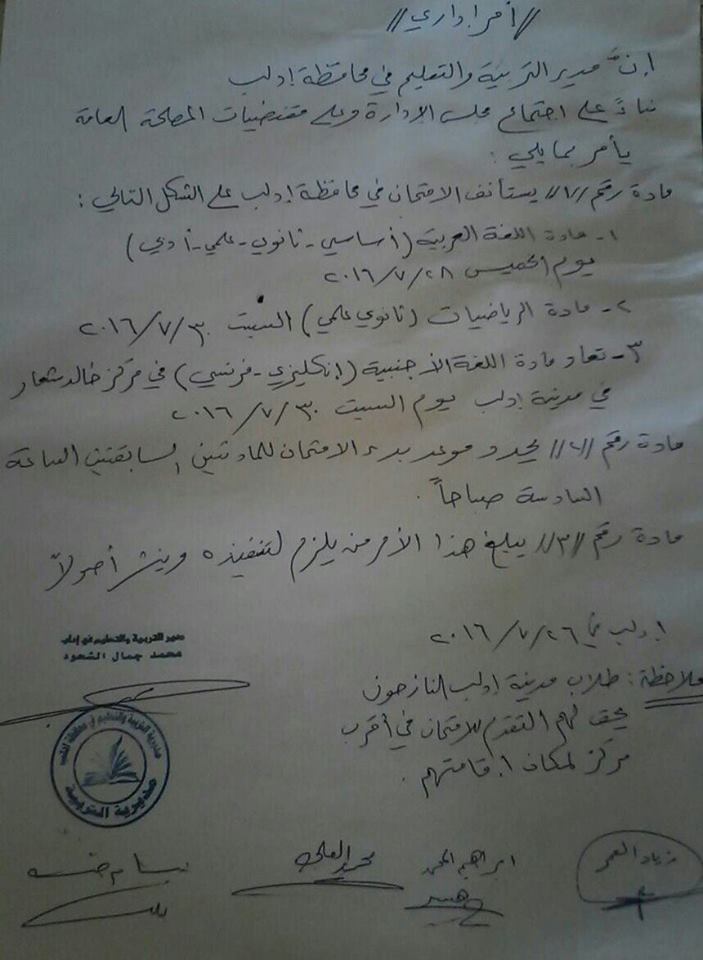 // أمر إداري //
إنّ مدير التربية والتعليم في محافظة إدلب
بناءً على اجتماع مجلس الإدارة وعلى مقتضيات المصلحة العامة
يأمر بما يلي :
مادة رقم /١/ يستأنف الامتحان في محافظة إدلب على الشكل التالي :
١- مادة اللغة العربية (أساسي - ثانوي - علمي - أدبي)
يوم الخميس ٢٠١٦/٧/٢٨
٢- مادة الرياضيات (ثانوي علمي) السبت ٢٠١٦/٧/٣٠
٣- تعاد مادة اللغة الأجنبية (إنكليزي - فرنسي) في مركز خالد شعار
في مدينة إدلب يوم السبت ٢٠١٦/٧/٣٠
مادة رقم /٢/ يحدد موعد بدء الامتحان للمادتين السابقتين الساعة
السادسة صباحاً .
مادة رقم /٣/ يبلغ هذا الأمر من يلزم لتنفيذه وينشر أصولاً
إدلب في ٢٠١٦/٧/٢٦
مدير التربية والتعليم في إدلب
محمد جمال الشحود
ملاحظة : طلاب مدينة إدلب النازحون
يحق لهم التقدم للامتحان في أقرب
مركز لمكان اقامتهم .
مديرية التربية والتعليم في محافظة إدلب
مديرية التربية
زياد العمر
ابراهيم المحمد
محمد العلي
بسام